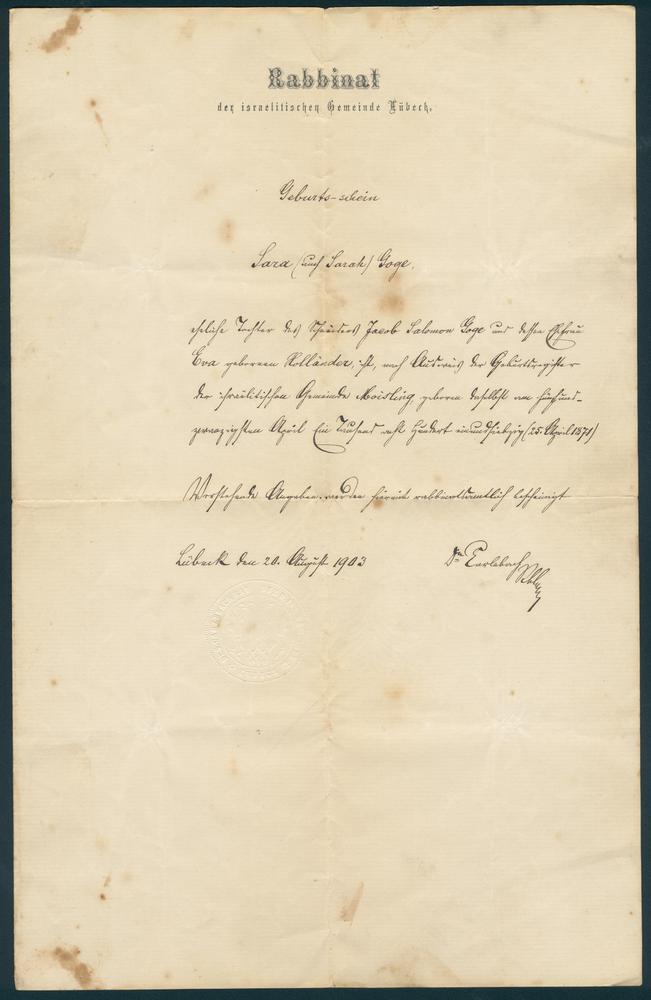 Rabbinat
der israelitischen Gemeinde Lübeck.
Geburts-schein
Sara (auch Sarah) Goge,
eheliche Tochter des Schneiders Jacob Salomon Goge und dessen Ehefrau
Eva geborenen Holländer, ist, nach Ausweis der Geburtsregister
der israelitischen Gemeinde Moisling, geboren daselbst am fünfund-
zwanzigsten April Ein Tausend acht Hundert einundsiebzig (25. April 1871)
Vorstehende Angaben werden hiermit rabbinatsamtlich bescheinigt
Lübeck den 20. August 1903
Dr. Carlebach